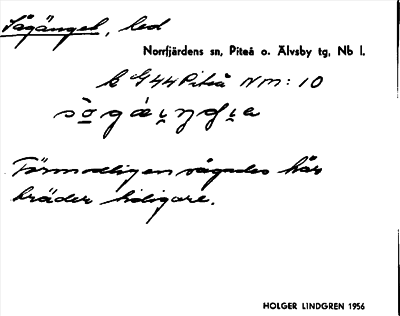 Sågängel, led
Norrfjärdens sn, Piteå o. Älvsby tg, Nb l.
k G44 Piteå NM: 10
Förmodligen sågades här
bräder tidigare.
HOLGER LINDGREN 1956